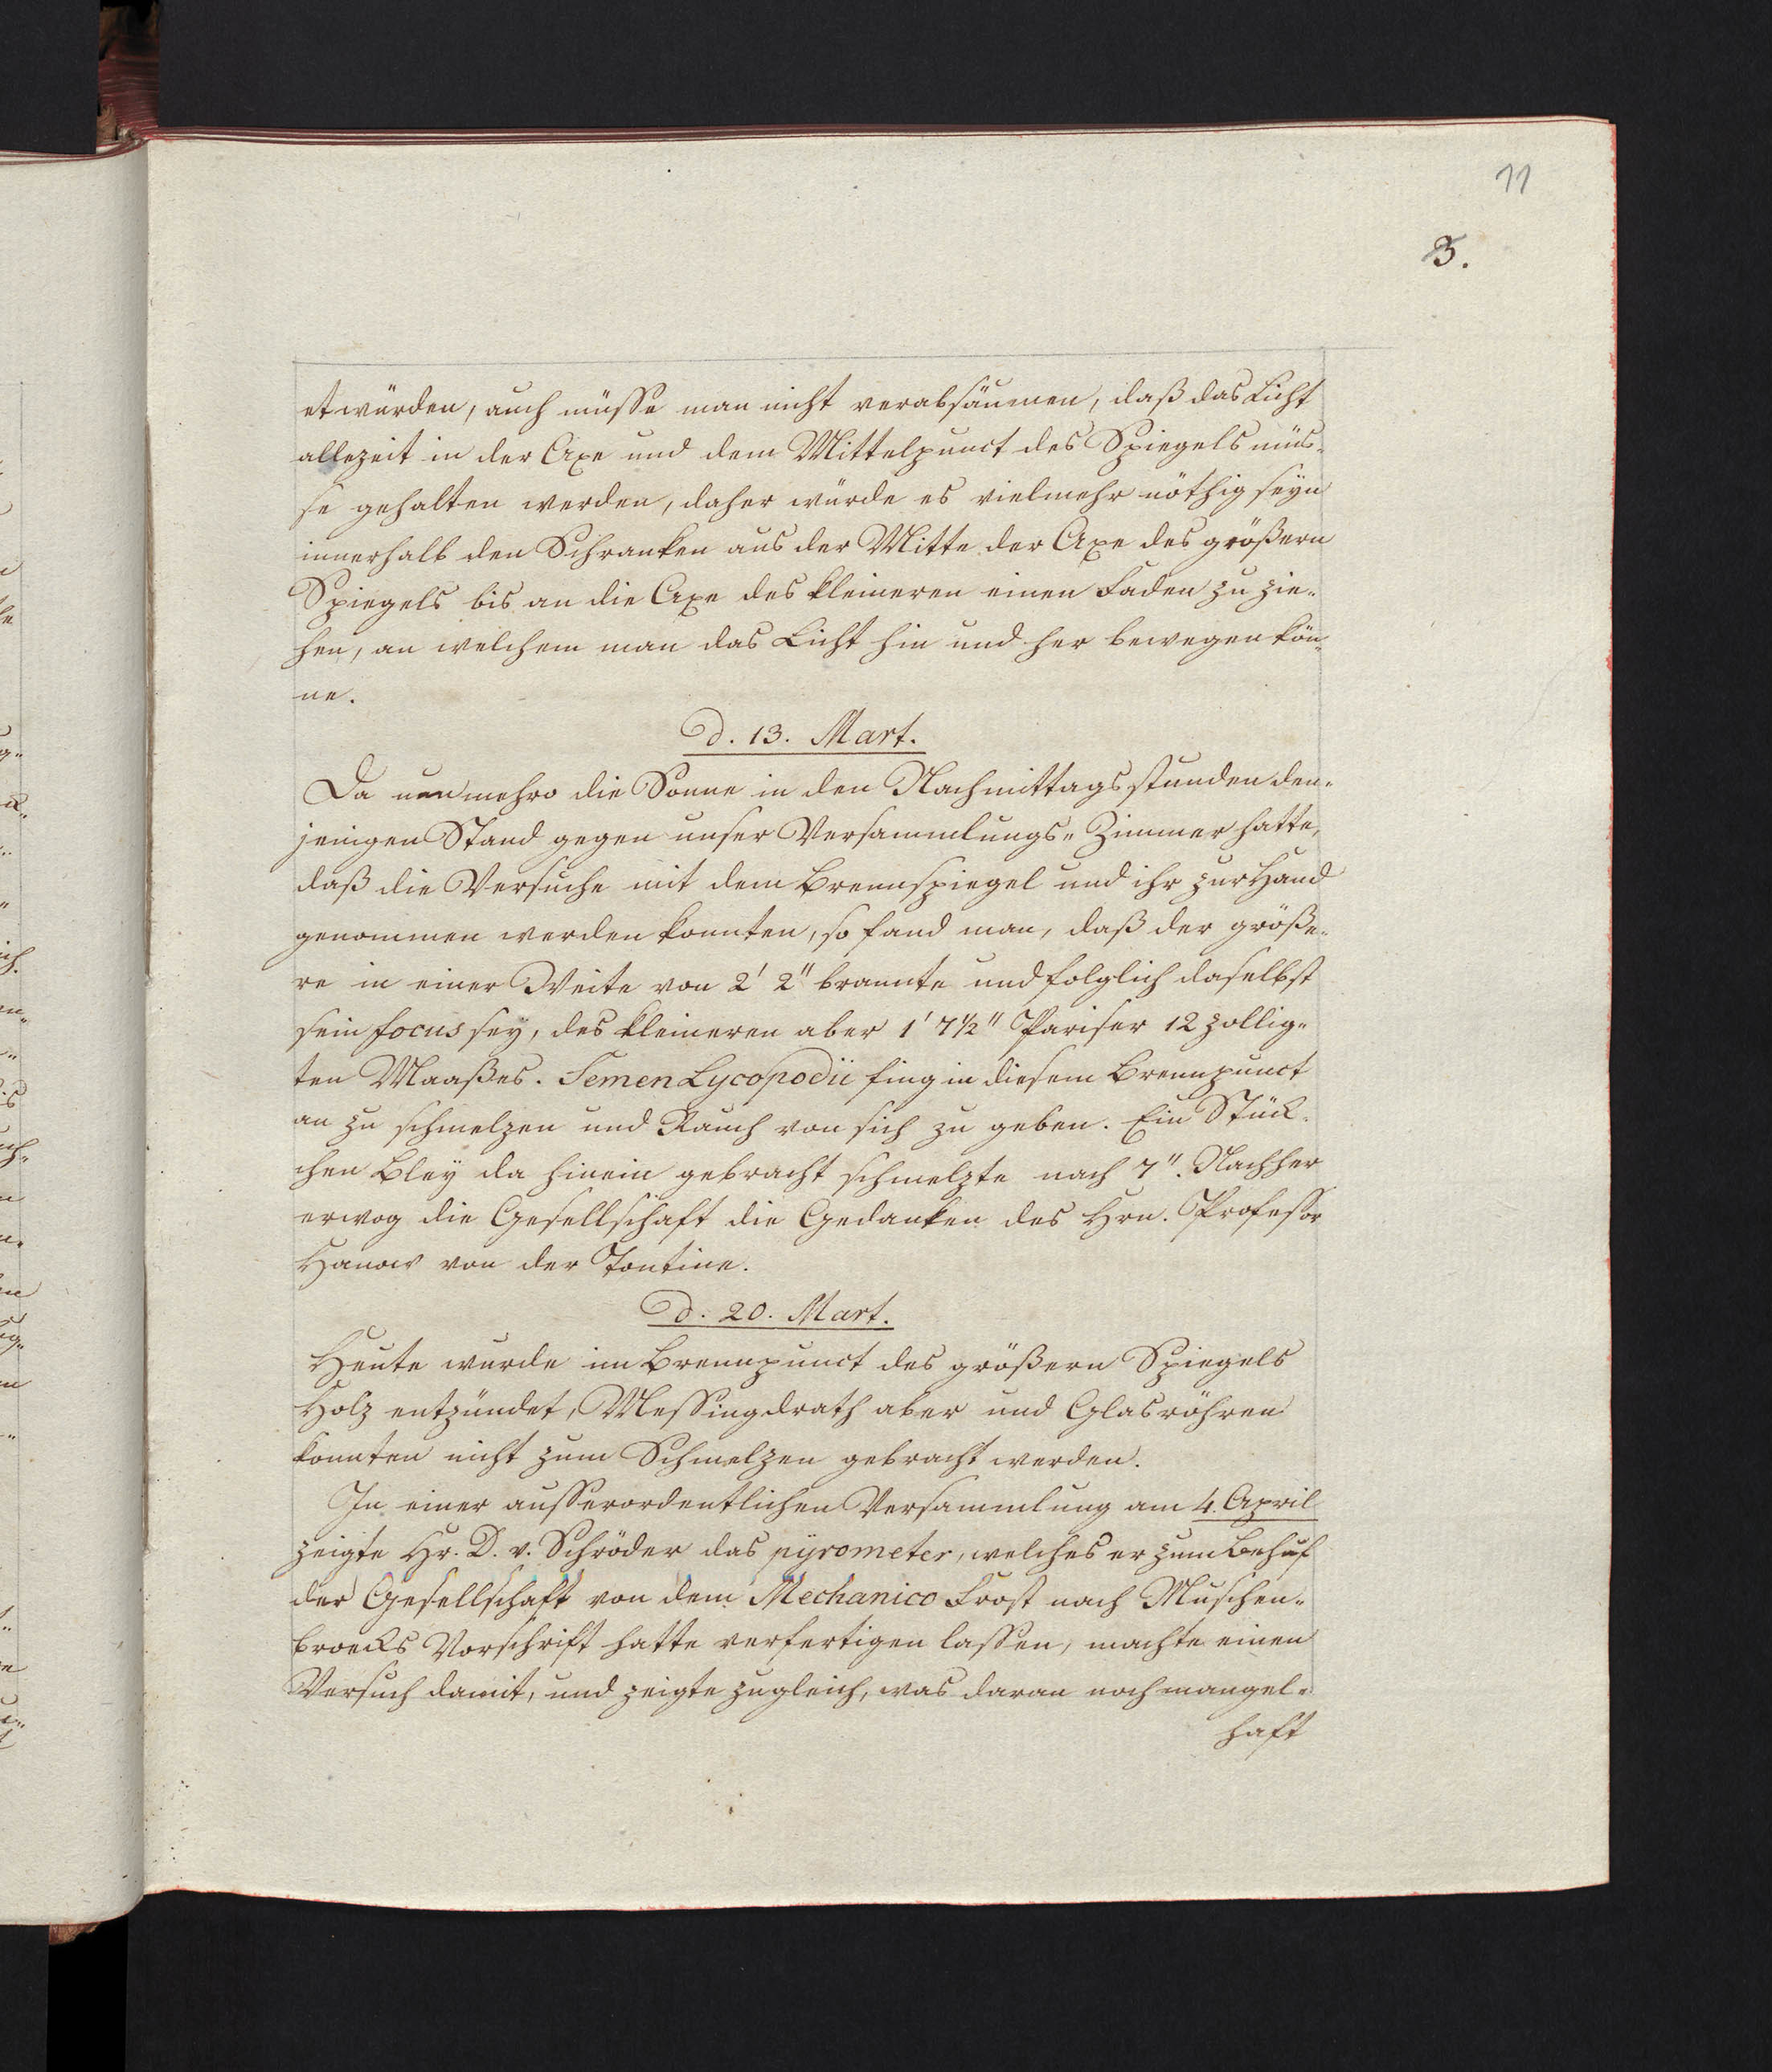 11
3.
et würden, auch müsse man nicht verabsäumen, daß das Licht
allezeit in der Axe und dem Mittelpunct des Spiegels müs-
se gehalten werden, daher würde es vielmehr nöthig seyn
innerhalb den Schranken aus der Mitte der Axe des größern
Spiegels bis an die Axe des kleineren einen Faden zu zie-
hen, an welchem man das Licht hin und her bewegen kön-
ne.
d. 13. Mart.
Da nunmehro die Sonne in den Nachmittagsstunden den-
jenigen Stand gegen unser Versammlungs-Zimmer hatte,
daß die Versuche mit dem Brennspiegel und ihr zur Hand
genommen werden konnten, so fand man, daß der größe-
re in einer Weite von 2' 2" brannte und folglich daselbst
sein focus sey, des kleineren aber 1' 7½" Pariser 12 zollig-
ten Maaßes. Semen Lycopodii fing in diesem Brennpunct
an zu schmelzen und Rauch von sich zu geben. Ein Stück-
chen Bley da hinein gebracht schmelzte nach 7". Nachher
erwog die Gesellschaft die Gedanken des Hrn. Professor
Hanow von der Tontine.
d. 20. Mart.
Heute wurde im Brennpunct des größern Spiegels
Holz entzündet, Messingdrath aber und Glasröhren
konnten nicht zum Schmelzen gebracht werden.
In einer ausserordentlichen Versammlung am 4. April
zeigte Hr. D. v. Schröder das pyrometer, welches er zum Behuf
der Gesellschaft von dem Mechanico Frost nach Muschen-
broecks Vorschrift hatte verfertigen lassen, machte einen
Versuch damit, und zeigte zugleich, was daran noch mangel-
haft